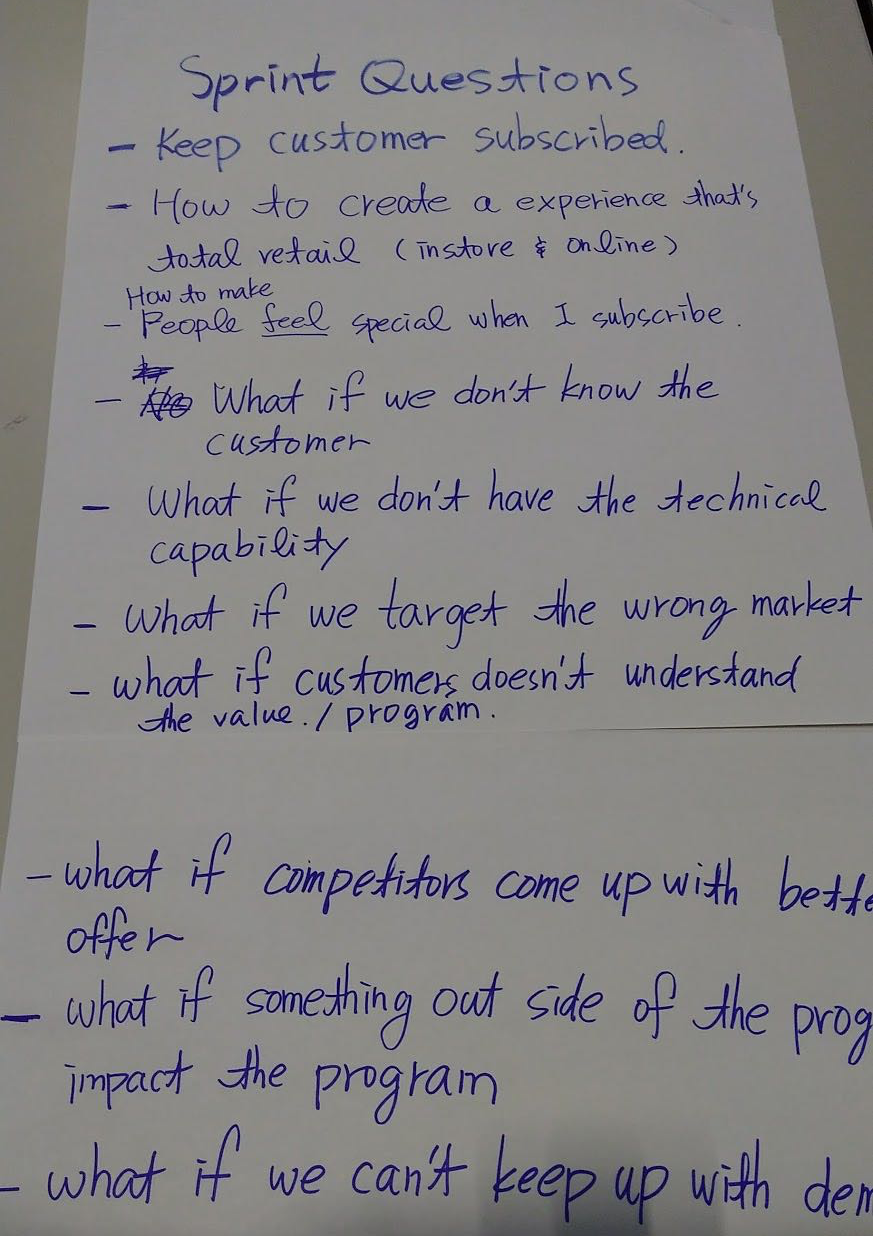 Sprint Questions
- Keep customer subscribed.
- How to create a experience that's
total retail (instore & online)
How to make
- People feel special when I subscribe.
- What if we don't know the
customer
- What if we don't have the technical
capability
- What if we target the wrong market
- what if customers doesn't understand
the value. / program.
- what if competitors come up with bette
offer
- what if something out side of the prog
impact the program
- what if we can't keep up with dem